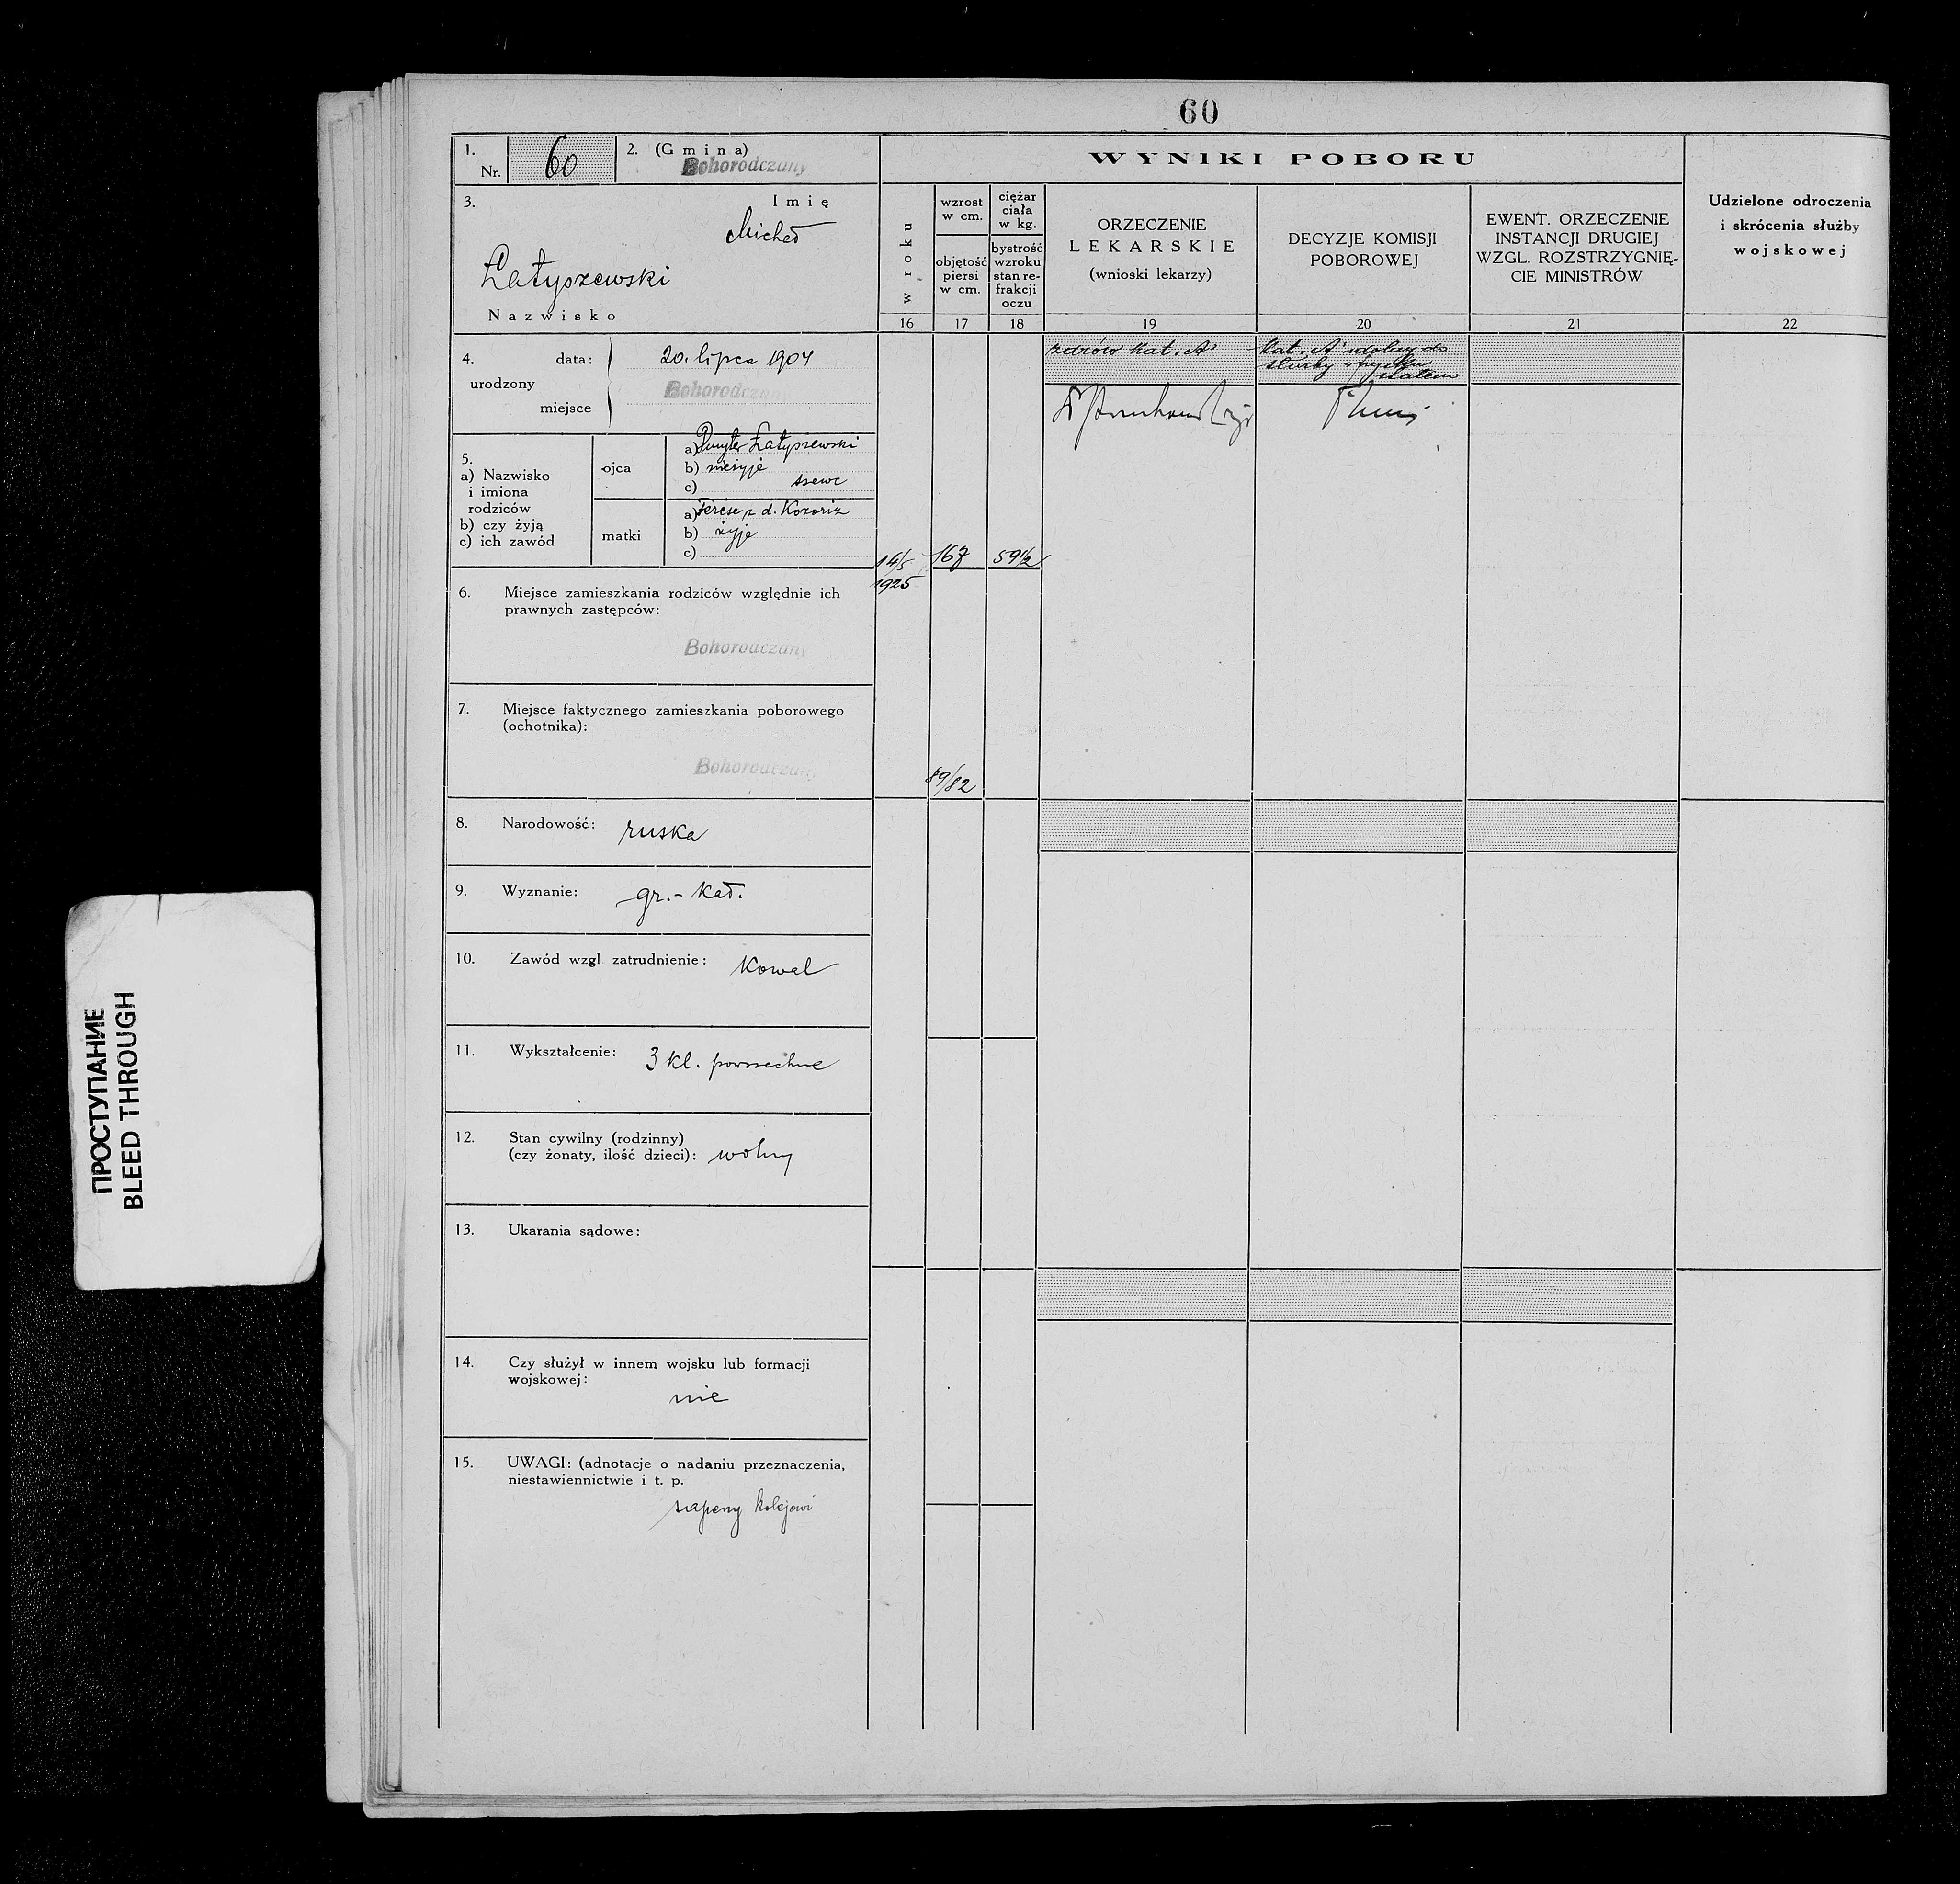 60
1.
Nr. 60
2. (Gmina)
Bohorodczany
3. Imię
Michał
Łatyszewski
Nazwisko
WYNIKI POBORU
w roku
wzrost
w cm.
objętość
piersi
w cm.
ciężar
ciała
w kg.
bystrość
wzroku
stan re-
frakcji
oczu
ORZECZENIE
LEKARSKIE
(wnioski lekarzy)
DECYZJE KOMISJI
POBOROWEJ
EWENT. ORZECZENIE
INSTANCJI DRUGIEJ
WZGL. ROZSTRZYGNIĘ-
CIE MINISTRÓW
Udzielone odroczenia
i skrócenia służby
wojskowej
16 17 18 19 20 21 22
4. data: 20. lipca 1904
urodzony
miejsce Bohorodczany
zdrów kat. A
kat. A zdolny do
służby
5.
a) Nazwisko
i imiona
rodziców
b) czy żyją
c) ich zawód
ojca
a) Dmyter Łatyszewski
b) nieżyje
c) szewc
matki
a) z d.
b) żyje
c)
14/5
1925
167
59 1/2
6. Miejsce zamieszkania rodziców względnie ich
prawnych zastępców:
Bohorodczany
7. Miejsce faktycznego zamieszkania poborowego
(ochotnika):
Bohorodczany
89/82
8. Narodowość: ruska
9. Wyznanie: gr.-kat.
10. Zawód wzgl zatrudnienie: Kowal
11. Wykształcenie: 3 kl. powszechne
12. Stan cywilny (rodzinny)
(czy żonaty, ilość dzieci): wolny
13. Ukarania sądowe:
14. Czy służył w innem wojsku lub formacji
wojskowej:
nie
15. UWAGI: (adnotacje o nadaniu przeznaczenia,
niestawiennictwie i t. p.
sapery kolejowi
ПРОСТУПАНИЕ
BLEED THROUGH